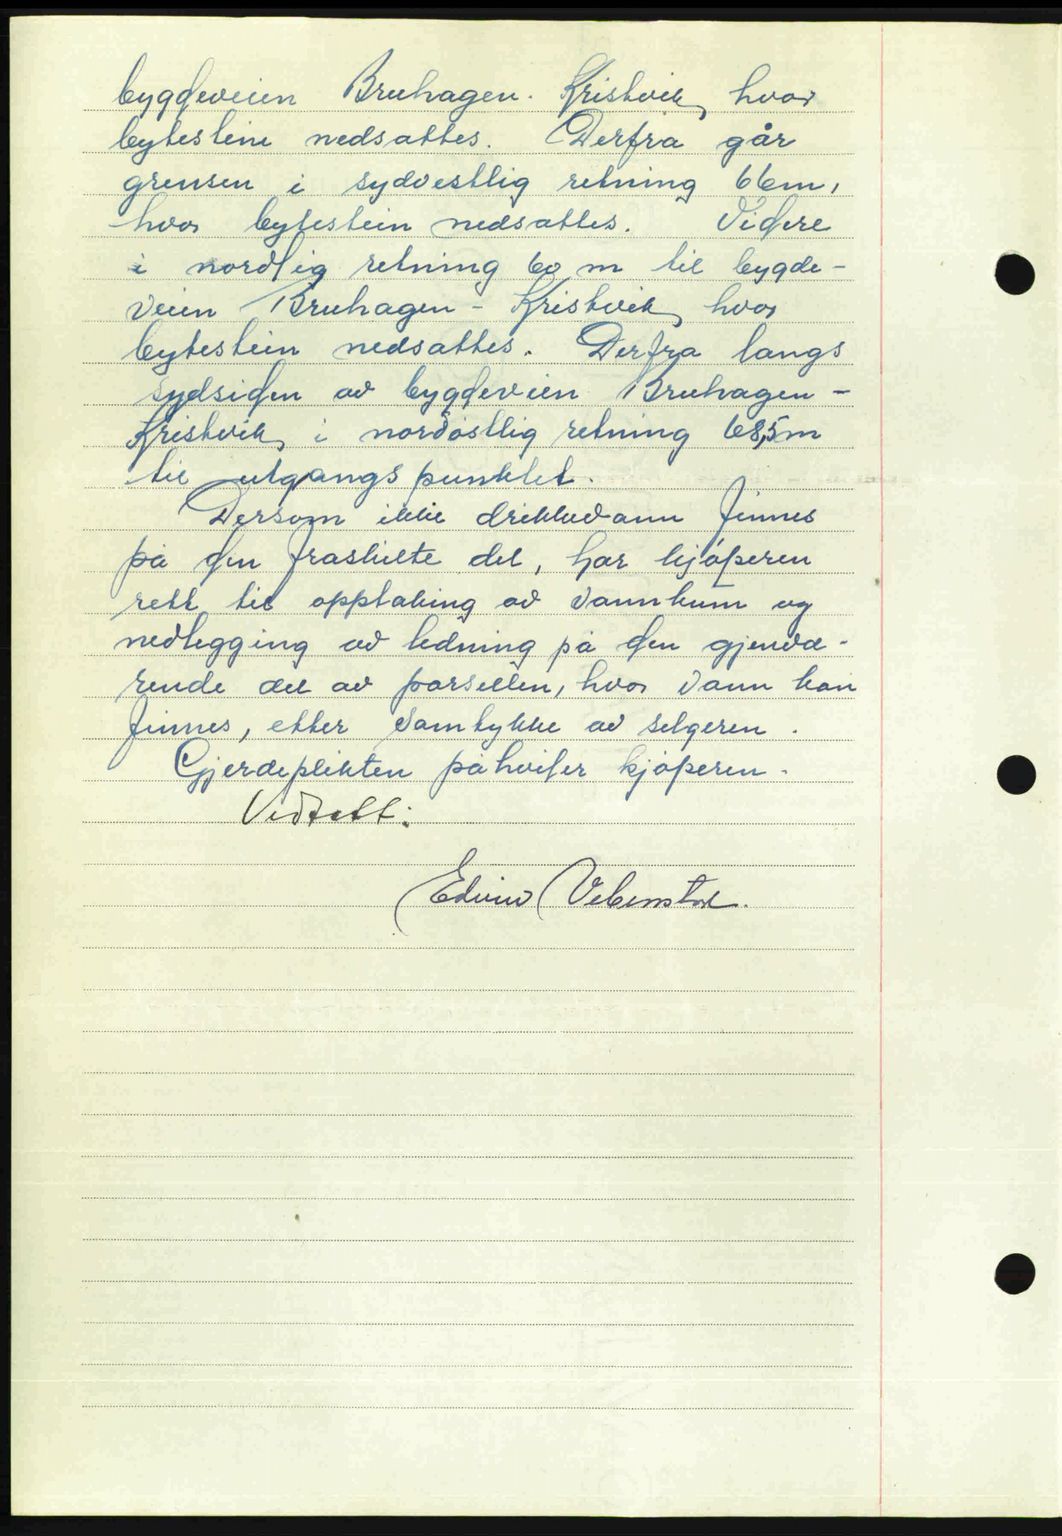 bygdeveien Bruhagen - Kristvik, hvor
bytestein nedsattes. Derfra går
grensen i sydvestlig retning 66m,
hvor bytestein nedsattes. Videre
i nordlig retning 60 m til bygde-
veien Bruhagen - Kristvik, hvor
bytestein nedsattes. Derfra langs
sydsiden av bygdeveien Bruhagen -
Kristvik, i nordøstlig retning 68,5m
til utgangspunktet.
Dersom ikke drikkevann finnes
på den fraskilte del, har kjøperen
rett til opptaking av vannkum og
nedlegging av ledning på den gjenvæ-
rende del av parsellen, hvor vann kan
finnes, etter samtykke av selgeren.
Gjerdeplikten påhviler kjøperen.
Vedtatt:
Edvin